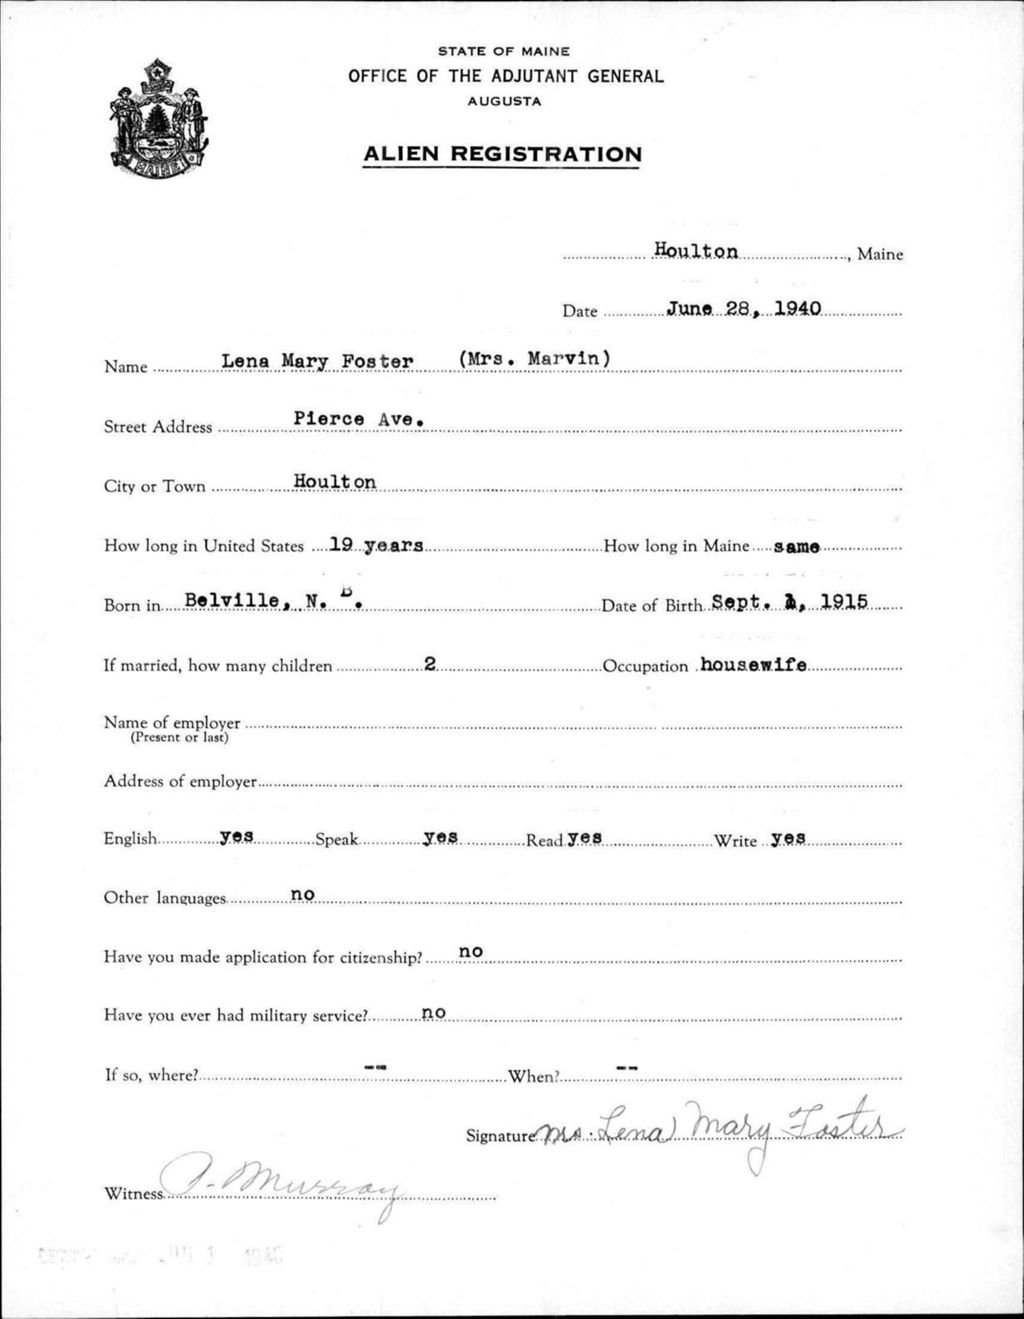 STATE OF MAINE
OFFICE OF THE ADJUTANT GENERAL
AUGUSTA
ALIEN REGISTRATION
MAINE
Houlton, Maine
Date June 28, 1940
Name Lena Mary Foster (Mrs. Marvin)
Street Address Pierce Ave.
City or Town Houlton
How long in United States 19 years How long in Maine same
Born in Belville, N. B. Date of Birth Sept. 1, 1915
If married, how many children 2 Occupation housewife
Name of employer
(Present or last)
Address of employer
English yes Speak yes Read yes Write yes
Other languages no
Have you made application for citizenship? no
Have you ever had military service? no
If so, where? -- When? --
Signature Mrs. Lena Mary Foster
Witness Murray